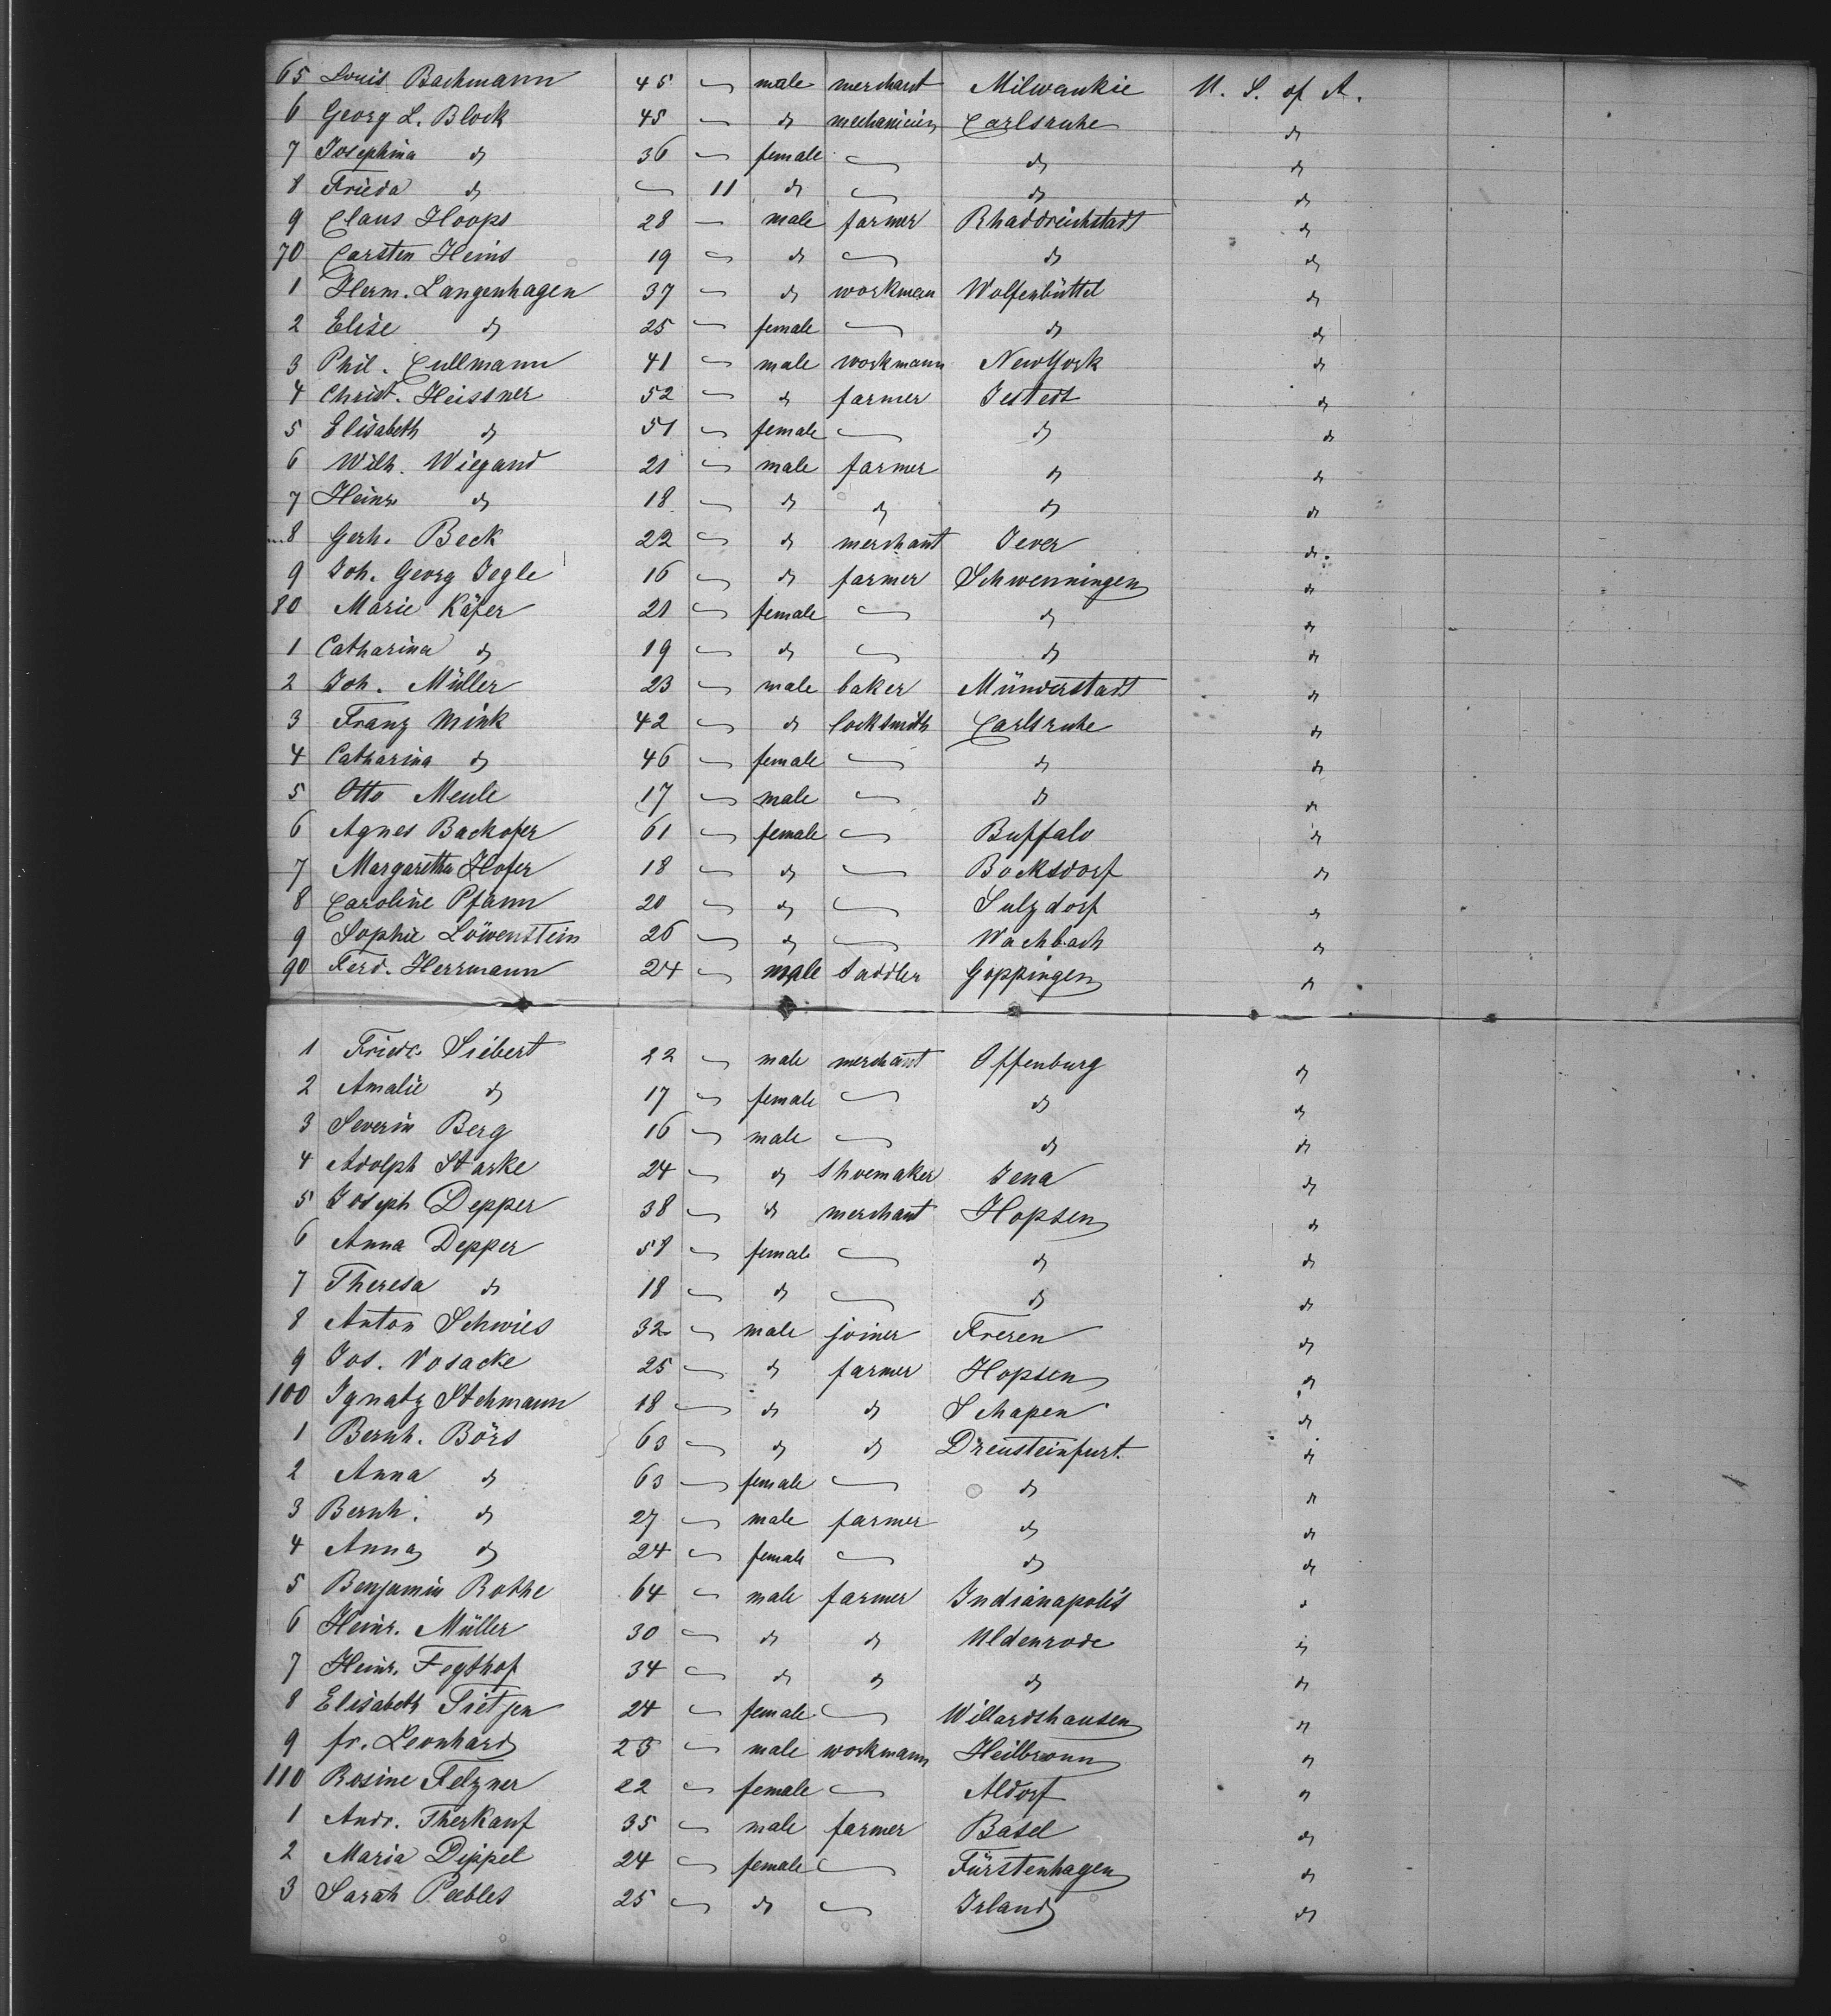 65 Louis Bachmann 45 — male merchant Milwaukie U. S. of A.
6 Georg L. Block 45 — do mechanicien Carlsruhe do
7 Josephina do 36 — female — do do
8 Frieda do — 11 do — do do
9 Claus Hoops 28 — male farmer Rhaddreichstadt do
70 Carsten Heins 19 — do — do do
1 Herm. Langenhagen 37 — do workman Wolfenbüttel do
2 Elise do 25 — female — do do
3 Phil. Cullmann 41 — male workmann NewYork do
4 Christ. Heissner 52 — do farmer Jestedt do
5 Elisabeth do 51 — female — do do
6 Wilh. Wiegand 21 — male farmer do do
7 Heinr. do 18 — do do do do
8 Gerh. Beck 22 — do merchant Jever do
9 Joh. Georg Jegle 16 — do farmer Schwenningen do
80 Marie Käfer 21 — female — do do
1 Catharina do 19 — do — do do
2 Joh. Müller 23 — male baker Münderstadt do
3 Franz Mink 42 — do locksmith Carlsruhe do
4 Catharina do 46 — female — do do
5 Otto Meule 17 — male — do do
6 Agnes Backofer 61 — female — Buffalo do
7 Margaretha Hofer 18 — do — Bocksdorf do
8 Caroline Pfann 20 — do — Sulzdorf do
9 Sophie Löwenstein 26 — do — Wachbach do
90 Ferd. Herrmann 24 — male saddler Goppingen do
1 Friedr. Siebert 22 — male merchant Offenburg do
2 Amalie do 17 — female — do do
3 Severin Berg 16 — male — do do
4 Adolph Starke 24 — do shoemaker Jena do
5 Joseph Depper 38 — do merchant Hopsen do
6 Anna Depper 58 — female — do do
7 Theresa do 18 — do — do do
8 Anton Schwies 32 — male joiner Freren do
9 Jos. Vosacke 25 — do farmer Hopsen do
100 Ignatz Stehmann 18 — do do Schapen do
1 Bernh. Börs 63 — do do Drensteinfurt. do
2 Anna do 63 — female — do do
3 Bernh. do 27 — male farmer do do
4 Anna do 24 — female — do do
5 Benjamin Rothe 64 — male farmer Indianapolis do
6 Heinr. Müller 30 — do do Uldenrode do
7 Heinr. Fegthof 34 — do do do do
8 Elisabeth Tietjen 24 — female — Willardshausen do
9 fr. Leonhard 23 — male workmann Heilbronn do
110 Rosine Felzner 22 — female — Aldorf do
1 Andr. Therkauf 35 — male farmer Basel do
2 Maria Dippel 24 — female — Fürstenhagen do
3 Sarah Peebles 25 — do — Irland do